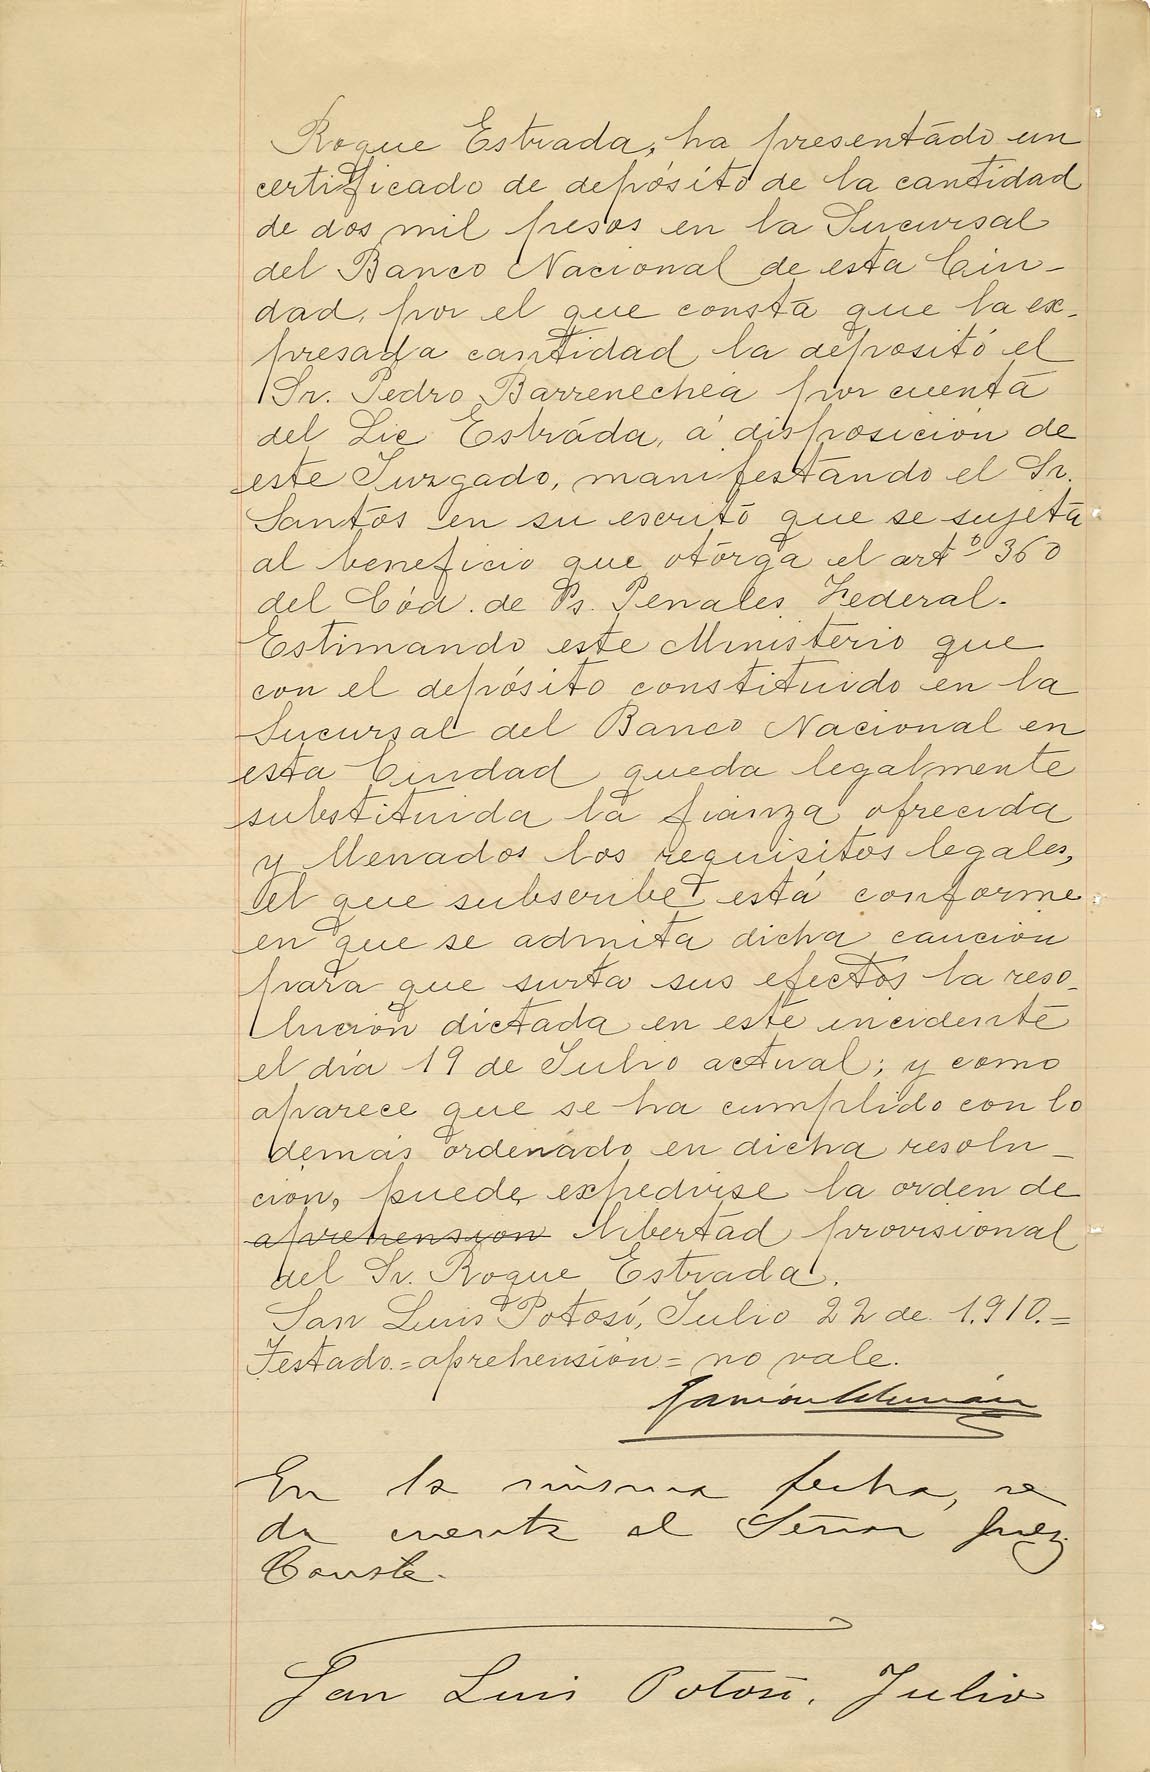 Roque Estrada, ha presentado un
certificado de depósito de la cantidad
de dos mil pesos en la Sucursal
del Banco Nacional de esta Ciu-
dad, por el que consta que la ex-
presada cantidad la depositó el
Sr. Pedro Barrenechea por cuenta
del Lic Estrada, á disposición de
este Juzgado, manifestando el Sr.
Santos en su escrito que se sujeta
al beneficio que otorga el artº 360
del Cód. de Ps. Penales Federal.
Estimando este Ministerio que
con el depósito constituido en la
Sucursal del Banco Nacional en
esta Ciudad queda legalmente
substituida la fianza ofrecida
y llenados los requisitos legales,
el que subscribe está conforme
en que se admita dicha caución
para que surta sus efectos la reso-
lución dictada en este incidente
el día 19 de Julio actual; y como
aparece que se ha cumplido con lo
demás ordenado en dicha resolu-
cion, puede expedirse la orden de
aprehension libertad provisional
del Sr. Roque Estrada.
San Luis Potosí, Julio 22 de 1,910.=
Testado.=aprehensión=no vale.
Ramón Alemán
En la misma fecha, se
da cuenta al Señor Juez.
Conste.
San Luis Potosí, Julio